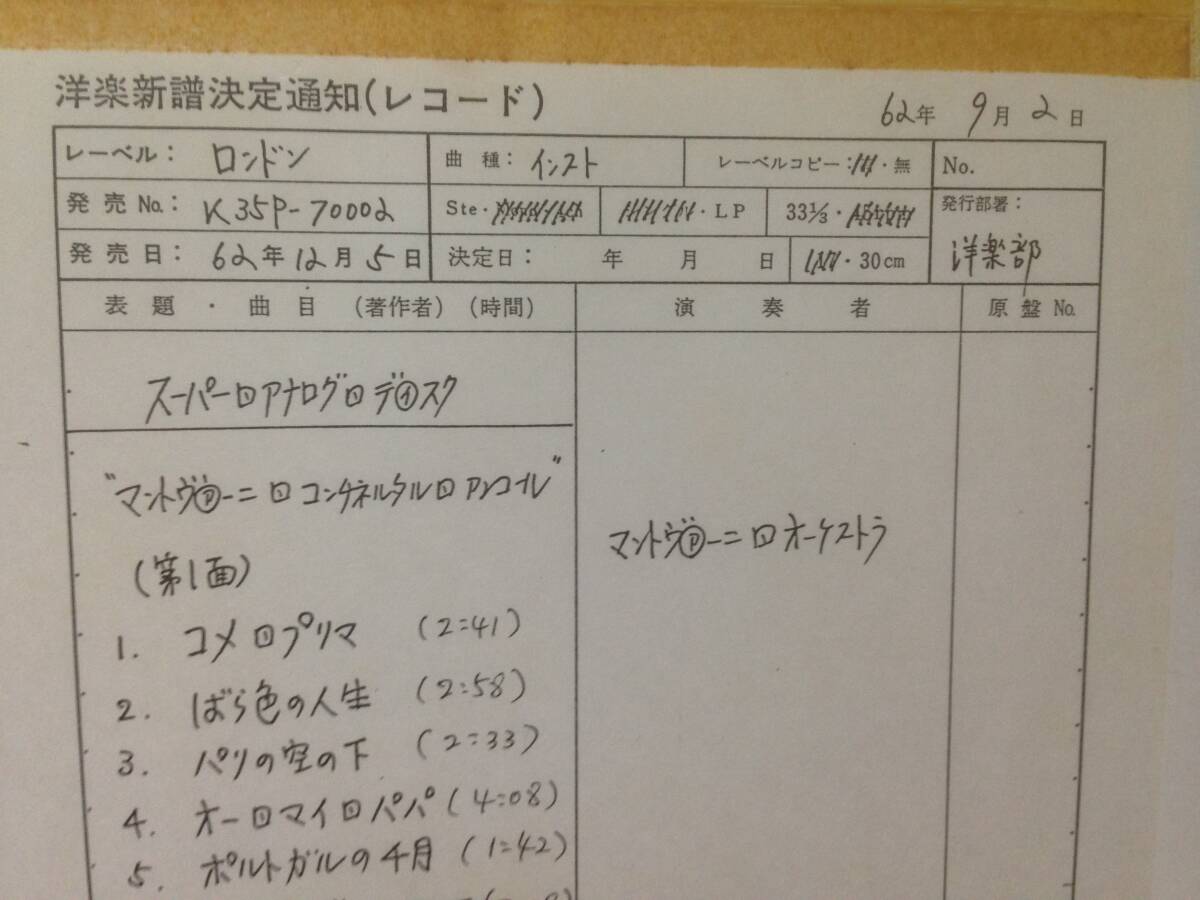 洋楽新譜決定通知(レコード)
62年 9月 2日
レーベル: ロンドン 曲種: インスト レーベルコピー: ・無 No.
発売No.: K35P-70002 Ste・ ・LP 33⅓・ 発行部署:
発売日: 62年12月5日 決定日: 年 月 日 ・30cm 洋楽部
表題・曲目(著作者)(時間) 演奏者 原盤No.
スーパー□アナログ□デⓘスク
"マントヴ㋐ーニ□コンチネルタル□アンコール"
マントヴ㋐ーニ□オーケストラ
(第1面)
1. コメ□プリマ (2:41)
2. ばら色の人生 (2:58)
3. パリの空の下 (2:33)
4. オー□マイ□パパ (4:08)
5. ポルトガルの4月 (1:42)